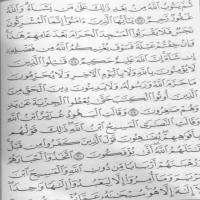 ثُمَّ يَتُوبُ اللَّهُ مِنْ بَعْدِ ذَٰلِكَ عَلَىٰ مَنْ يَشَاءُ وَاللَّهُ
غَفُورٌ رَحِيمٌ يَٰأَيُّهَا الَّذِينَ ءَامَنُوا إِنَّمَا الْمُشْرِكُونَ
نَجَسٌ فَلَا يَقْرَبُوا الْمَسْجِدَ الْحَرَامَ بَعْدَ عَامِهِمْ هَٰذَا
وَإِنْ خِفْتُمْ عَيْلَةً فَسَوْفَ يُغْنِيكُمُ اللَّهُ مِنْ فَضْلِهِ
إِنْ شَاءَ إِنَّ اللَّهَ عَلِيمٌ حَكِيمٌ قَٰتِلُوا الَّذِينَ
لَا يُؤْمِنُونَ بِاللَّهِ وَلَا بِالْيَوْمِ الْآخِرِ وَلَا يُحَرِّمُونَ
مَا حَرَّمَ اللَّهُ وَرَسُولُهُ وَلَا يَدِينُونَ دِينَ الْحَقِّ مِنَ
الَّذِينَ أُوتُوا الْكِتَٰبَ حَتَّىٰ يُعْطُوا الْجِزْيَةَ عَنْ يَدٍ
وَهُمْ صَٰغِرُونَ وَقَالَتِ الْيَهُودُ عُزَيْرٌ ابْنُ اللَّهِ
وَقَالَتِ النَّصَٰرَى الْمَسِيحُ ابْنُ اللَّهِ ذَٰلِكَ قَوْلُهُمْ
بِأَفْوَٰهِهِمْ يُضَٰهِئُونَ قَوْلَ الَّذِينَ كَفَرُوا مِنْ قَبْلُ
قَٰتَلَهُمُ اللَّهُ أَنَّىٰ يُؤْفَكُونَ اتَّخَذُوا أَحْبَارَهُمْ
وَرُهْبَٰنَهُمْ أَرْبَابًا مِنْ دُونِ اللَّهِ وَالْمَسِيحَ ابْنَ
مَرْيَمَ وَمَا أُمِرُوا إِلَّا لِيَعْبُدُوا إِلَٰهًا وَٰحِدًا
لَا إِلَٰهَ إِلَّا هُوَ سُبْحَٰنَهُ عَمَّا يُشْرِكُونَ